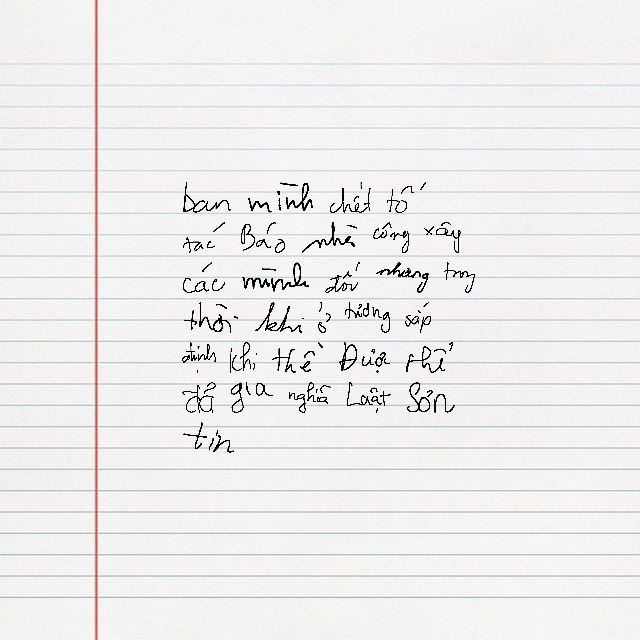 ban mình chết tố
tác Báo nhà công xây
các mình đối nhưng trong
thời khi ở tướng sáp
định khi thể Được thể
đã gia nghĩa Luật Sơn
tin